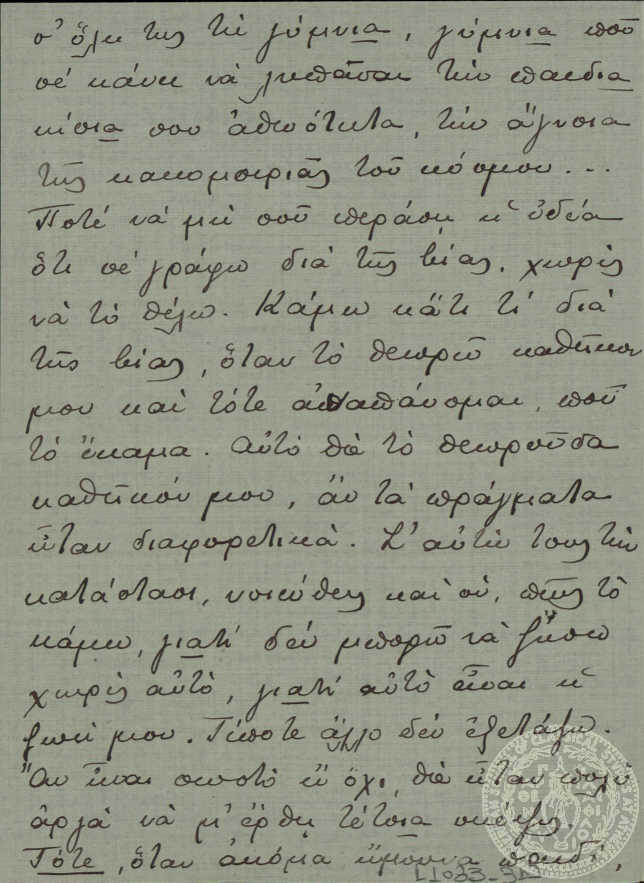 σ' ὅλη της τὴ γύμνια, γύμνια ποῦ
σέ κάνει νὰ λυπᾶσαι τὴν παιδια
κίσια σου ἀθωότητα, τὴν ἄγνοια
τῆς κακομοιριᾶς τοῦ κόσμου...
Ποτέ νὰ μὴ σοῦ περάσῃ ἡ ἰδέα
ὅτι σέ γράφω διὰ τῆς βίας, χωρίς
νὰ τὸ θέλω. Κάμω κἄτι τί διὰ
τῆς βίας, ὅταν τὸ θεωρῶ καθῆκον
μου καὶ τότε ἀναπαύομαι, ποῦ
τὸ ἔκαμα. Αὐτὸ θὰ τὸ θεωροῦσα
καθῆκόν μου, ἄν τὰ πράγματα
ἦταν διαφορετικά. Σ' αὐτὴ τους τὴν
κατάστασι, νοιώθεις καὶ σύ, πῶς τὸ
κάμω, γιατί δέν μπορῶ νὰ ζήσω
χωρίς αὐτό, γιατί αὐτὸ εἶναι ἡ
ζωή μου. Τίποτε ἄλλο δέν ἐξετάζω.
Ἄν εἶναι σωστό ἤ ὄχι, θὰ ἦταν πολύ
ἀργὰ νὰ μ' ἔρθῃ τέτοια σκέψις.
Τότε, ὅταν ἀκόμα ἤμουνα παιδί,